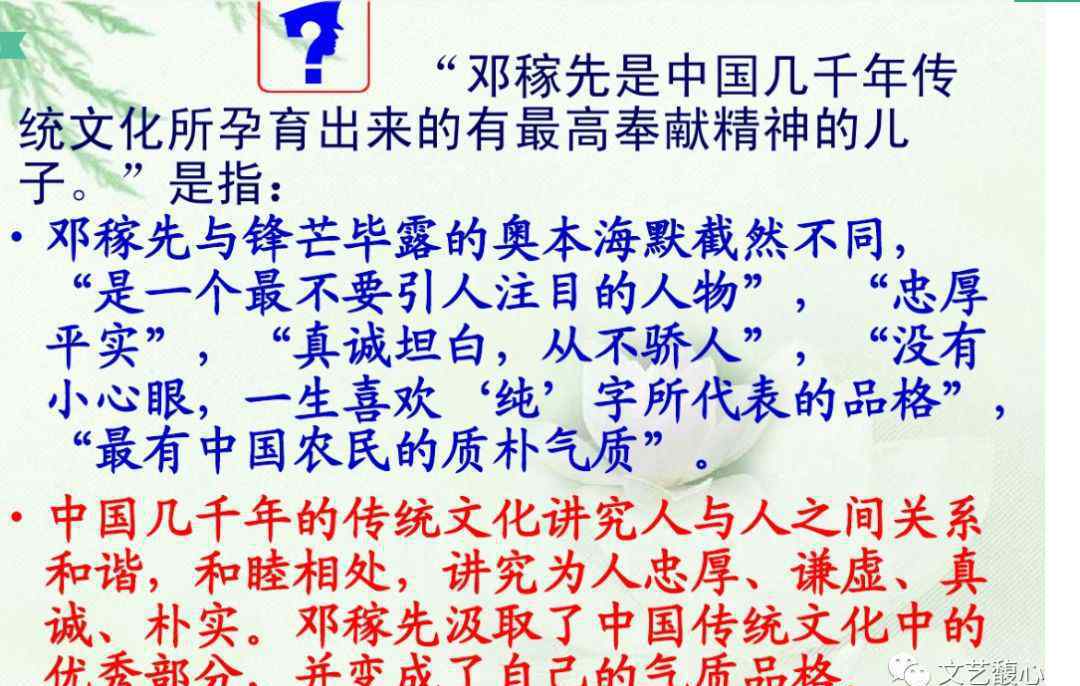 “邓稼先是中国几千年传
统文化所孕育出来的有最高奉献精神的儿
子。”是指：
• 邓稼先与锋芒毕露的奥本海默截然不同，
“是一个最不要引人注目的人物”，“忠厚
平实”，“真诚坦白，从不骄人”，“没有
小心眼，一生喜欢‘纯’字所代表的品格”，
“最有中国农民的质朴气质”。
• 中国几千年的传统文化讲究人与人之间关系
和谐，和睦相处，讲究为人忠厚、谦虚、真
诚、朴实。邓稼先汲取了中国传统文化中的
优秀部分，并变成了自己的气质品格。
文艺馥心